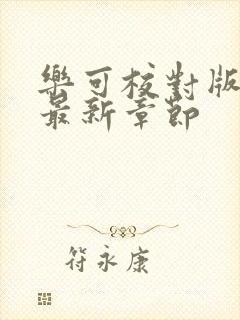 樂可校對版
最新章節
符永康